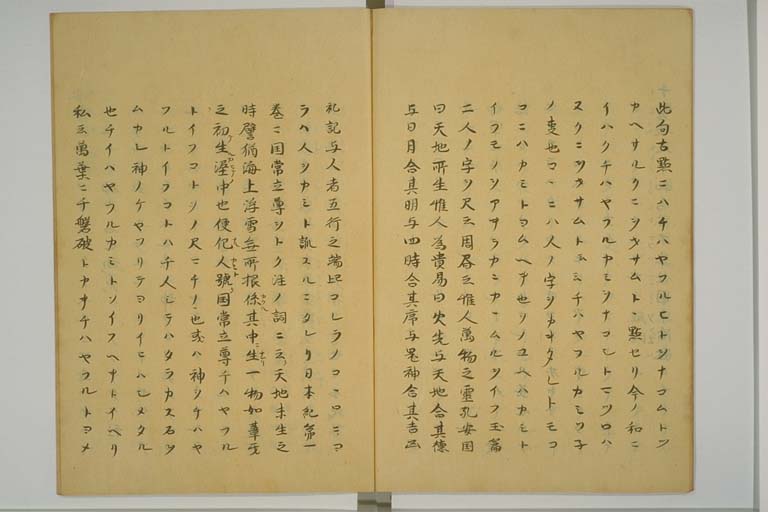 此句古點ニハチハヤフルヒトヲナコムトソ
カヘサルクニヲヲサムト點セリ今ノ和ニ
イハクチハヤフルカミヲナコシトマツロハ
スクニヲヲサムト云ミチハヤフルカミヲ
ノ事也コヽニハ人ノ字ヲカケタレトモコ
コニハカミトヨムヘキ也ソノユヘハカミト
イフモノヲアサラカニカ ムルヲイフ玉篇
二人ノ字ヲ尺云周書云惟人萬物之靈孔安国
曰天地所生惟人為貴易曰大人者与天地合其德
与日月合其明与四時合其序与鬼神合其吉凶
礼記与人者五行之端也コレラノコヽロニヨ
ラハ人ヲカミト訓スルニタレリ日本紀第一
巻ニ国常立尊ヲトク注ノ詞ニ云天地未生之
時譬猶海上浮雪無所根係其中生一物如葦牙
之初生渥中也便化人號国常立尊チハヤフル
トイフコトヲノ尺ニチノ也或ハ神ヲチハヤ
フルトイフコトハ千人シテハタラカス石ヲ
ムカし神ノケヤフリテヨリイヒハしメタル
也チイハヤフルカミトソイフヘキトイヘリ
私云萬葉ニ千磐破トカキチハヤフルトヨメ